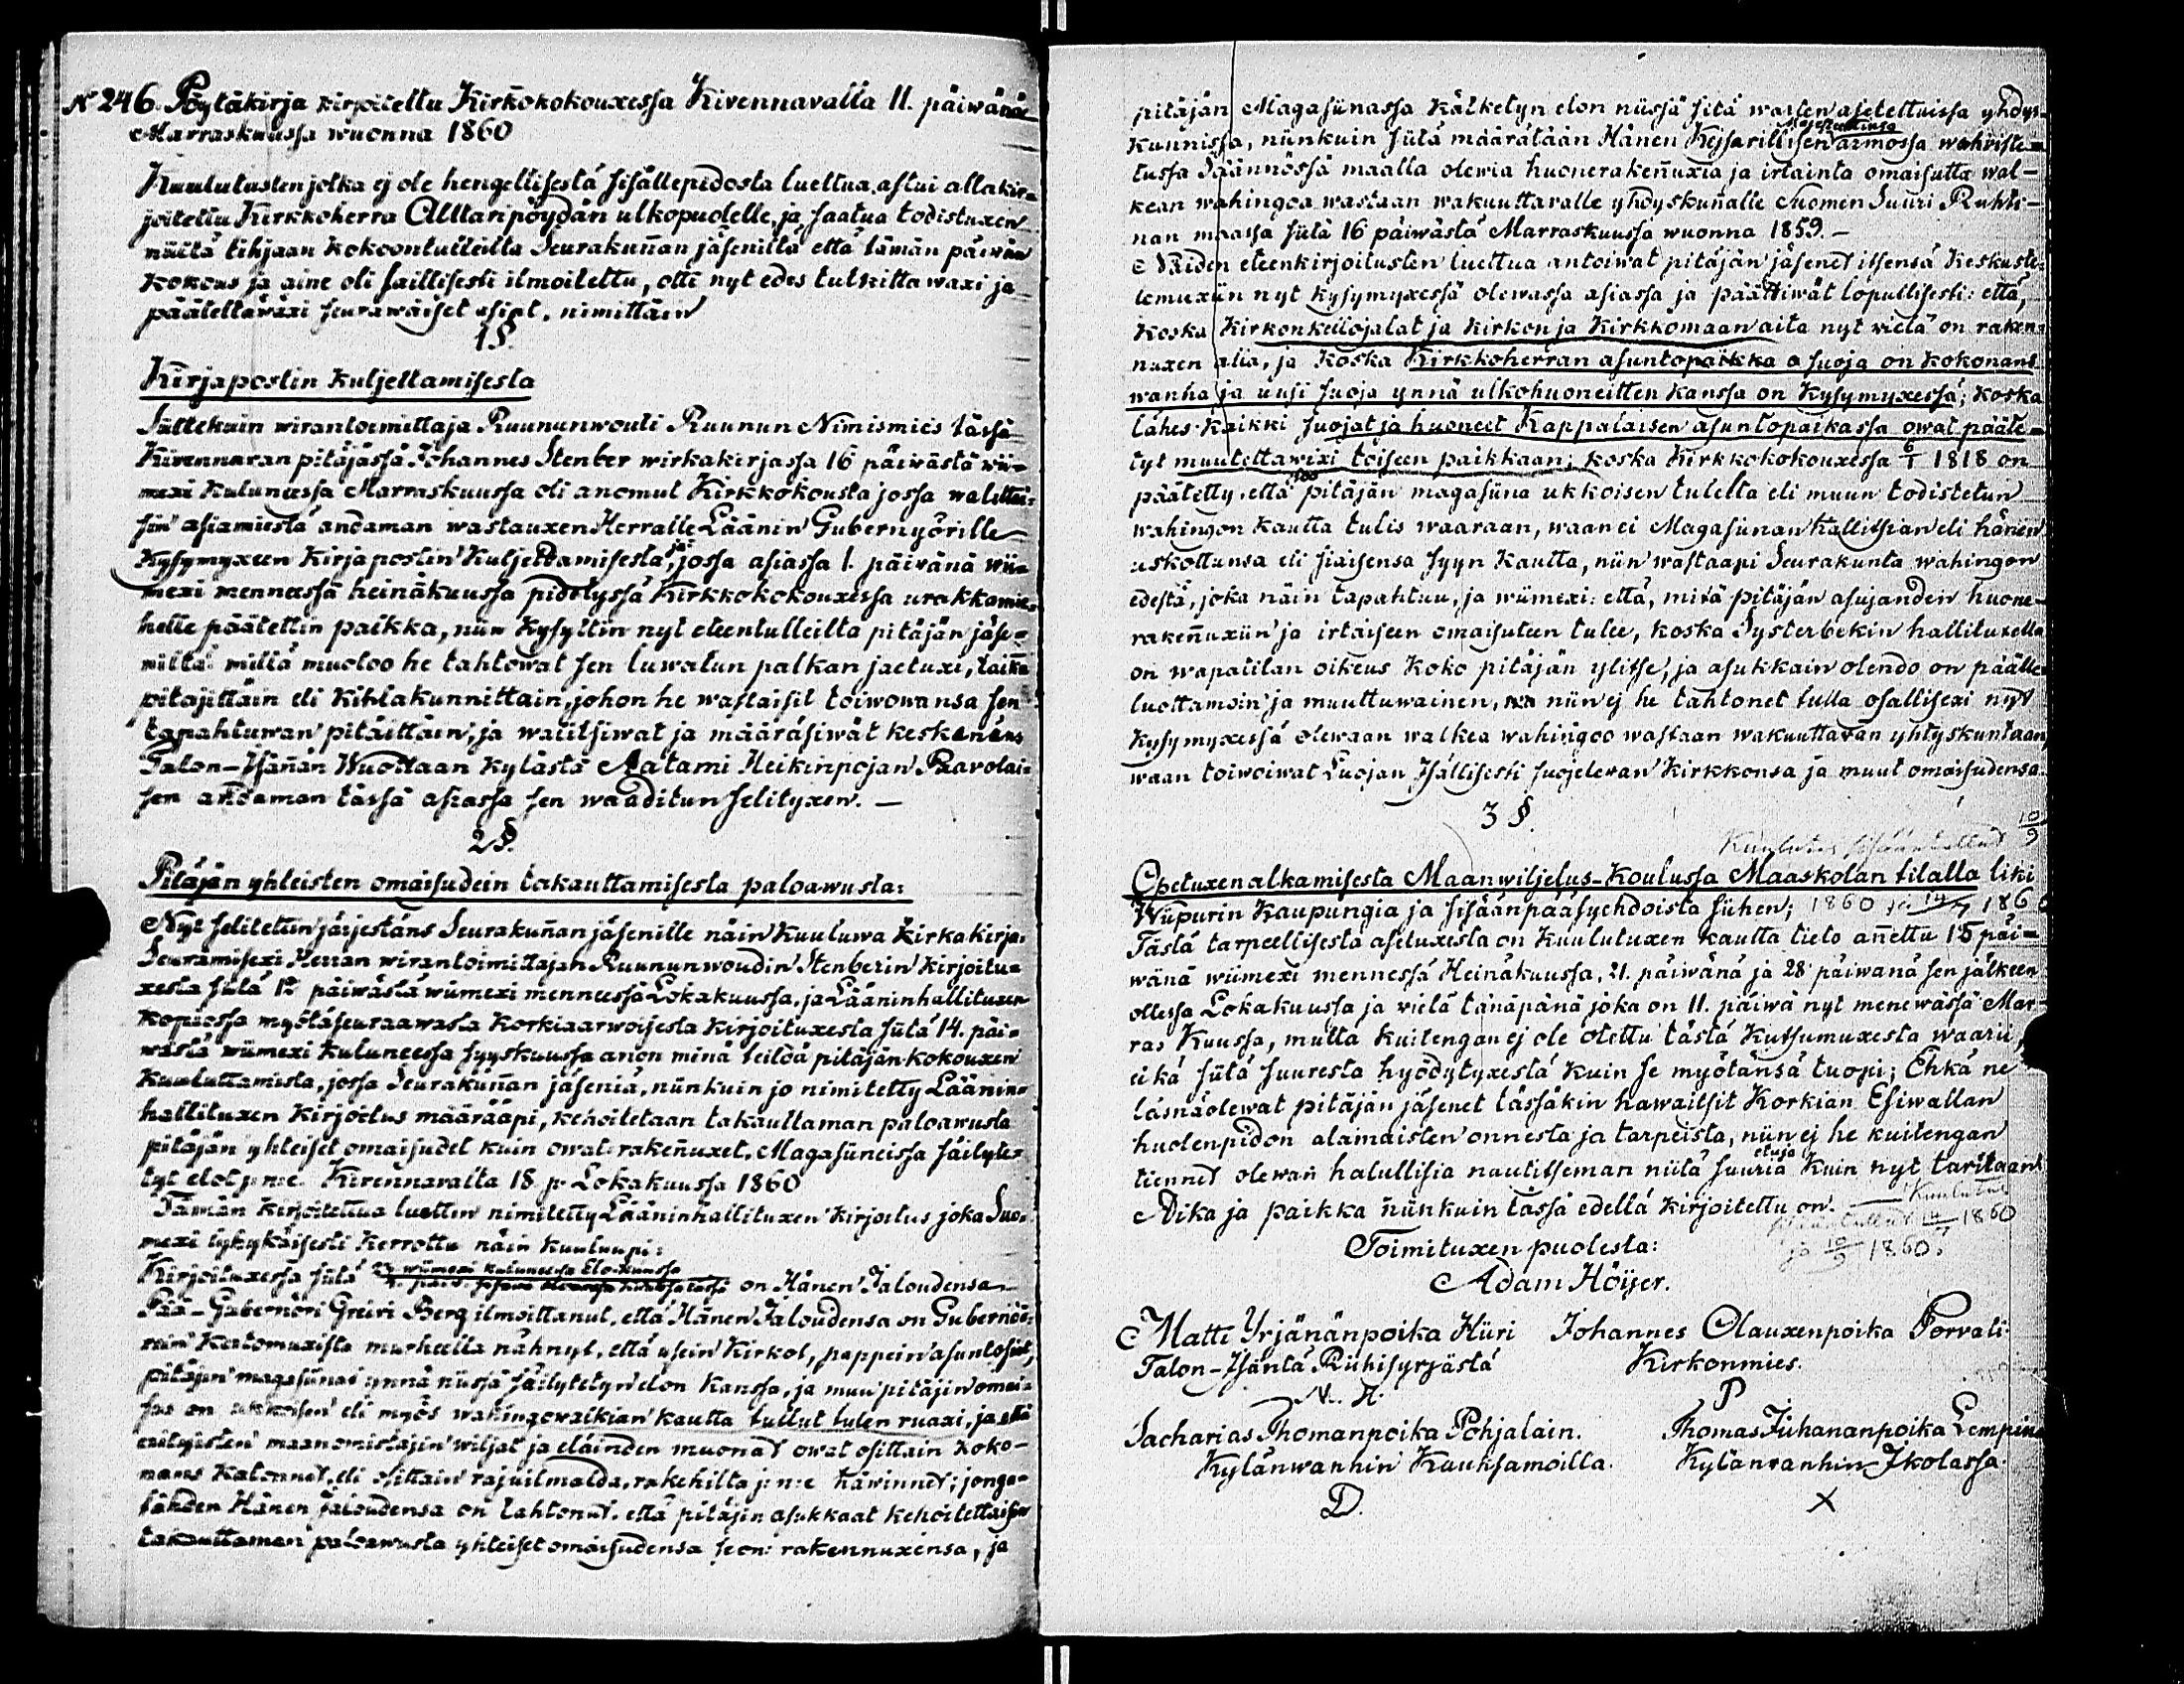 N 246. Pöytäkirja kirjoitettu Kirkokokouxessa Kivennavalla 11. päiwänä
Marraskuussa wuonna 1860
Kuulutusten jotka ej ole hengellisestä sisällepidosta luettua, astui allakir-
joitettu Kirkkoherra Alttaripöydän ulkopuolelle, ja saatua todistuxen
näiltä tihjaan kokoontulleilta Seurakuñan jäseniltä että tämän päiwän
kokous ja aine oli laillisesti ilmoitettu, otti nyt edes tutkittawaxi ja
päätettäwäxi seurawaiset asiat, nimittäin
1 §.
Kirjapostin kuljettamisesta
Sittekuin wirantoimittaja Ruununwouti Ruunun Nimismies tässä
Kivennavan pitäjässä Johannes Stenber wirkakirjassa 16 päiwästä wii-
mexi kuluneessa Marraskuussa oli anomut Kirkkokousta jossa walittai-
sin asiamiestä andaman wastauxen Herralle Läänin Gubernyörille
Kysymyxeen Kirjapostin kuljettamisesta, ja jossa asiassa 1. päivänä wii-
mexi menneessä heinäkuussa pidetyssä Kirkkokokouxessa urakkamie-
helle päätettin paikka, niin kysyttin nyt eteentulleilta pitäjän jäse-
niltä: millä muotoo he tahtowat sen luwatun palkan jaetuxi, taikka
pitäjittäin eli kihlakunnittain, johon he wastaisit toiwowansa sen
tapahtuwan pitäittäin; ja walitsiwat ja määräsiwät keskenäns
Talon-Isäñän Wuottaan kylästä Aatami Heikinpojan Paavolai-
sen andaman tässä asiassa sen waaditun selityxen. —
2 §.
Pitäjän yhteisten omaisudein takauttamisesta paloawusta:
Nyt selitetiin järjestäns Seurakuñan jäsenille näin kuuluwa kirkakirja:
Seuramisexi Herran wirantoimittajan Ruununwoudin Stenberin kirjoitu-
xesta siitä 12 päiwästä wiimexi menneessä Lokakuussa, ja Lääninhallituxen
kopiossa myötäseuraawasta korkiaarwoisesta kirjoituxesta siitä 14. päi-
wästä wiimexi kuluneessa syyskuussa anon minä teildä pitäjän-kokouxen
kuuluttamista, jossa Seurakuñan jäseniä, niinkuin jo nimitetty Läänin-
hallituxen kirjoitus määrääpi, kehoitetaan takauttaman paloawusta
pitäjän yhteiset omaisudet kuin owat: rakeñuxet, Magasiineissa säilyte-
tyt elot j: n: e. Kivennavalta 18 p: Lokakuussa 1860
Tämän kirjoitettua luettiin nimitetty Lääninhallituxen kirjoitus joka Suo-
mexi lyhykäisesti kerrottu näin kuuluupi:
Kirjoituxessa siitä 23 wiimexi kuluneessa Elo-kuussa on Hänen Jaloudensa
Pää-Gubernöri Greivi Berg ilmoittanut, että Hänen Jaloudensa on Gubernöö-
rein katomuxista murheella nähnyt, että usein kirkot, pappein asuntosiat,
pitäjin magasiinat ynnä niissä säilytetyn elon kanssa, ja muu pitäjin omai-
sus on ukkoisen eli myös wahingowalkian kautta tullut tulen ruaxi, ja että
erityisten maanomistajin wiljat ja eläinden muonat owat osittain koko-
nans katonnet, eli osittain rajuilmalda, rakehilta j: n: e häwinnet; jonga-
tähden Hänen Jaloudensa on tahtonut, että pitäjin asukkaat kehoitettaisin
takauttaman paloawusta yhteiset omaisudensa se on: rakennuxensa, ja
pitäjän Magasiinassa kätketyn elon niissä sitä warten asetettuissa yhdys-
kunnissa, niinkuin siitä määrätään Hänen Keisarillisen Majesteetinsa armossa wahwiste-
tussa Säännössä maalla olewia huonerakeñuxia ja irtainta omaisutta wal-
kean wahingoa wastaan wakuuttavalle yhdyskunalle Suomen Suuri Ruhti-
nan maassa siitä 16 päiwästä Marraskuussa wuonna 1859. —
Näiden eteenkirjoitusten luettua antoiwat pitäjän jäsenet itsensä keskuste-
lemuxiin nyt kysymyxessä olewassa asiassa ja päättiwät lopullisesti: että,
koska Kirkonkellojalat ja Kirkon ja Kirkkomaan aita nyt vielä on raken-
nuxen alla, ja koska Kirkkoherran asuntopaikka suoja on kokonans
wanha ja uusi suoja ynnä ulkohuoneitten kanssa on kysymyxessä; koska
lähes kaikki suojat ja huoneet Kappalaisen asuntopaikassa owat pääte-
tyt muutettawixi toiseen paikkaan; koska Kirkkokokouxessa 6/1 1818 on
päätetty, että jos pitäjän magasiina ukkoisen tulelta eli muun todistetun
wahingon kautta tulis waaraan, waan ei Magasiinan hallitsian eli hänen
uskottunsa eli siaisensa syyn kautta, niin wastaapi Seurakunta wahingon
edestä, joka näin tapahtuu, ja wiimexi: että, mitä pitäjän asujanden huone-
rakeñuxiin ja irtaiseen omaisuteen tulee, koska Systerbekin hallituxella
on wapatilan oikeus koko pitäjän ylitse, ja asukkain olendo on päälle-
luottamoin ja muuttuwainen, niin ej he tahtonet tulla osallisexi nyt
kysymyxessä olewaan walkea wahingoo wastaan wakuuttavan yhtyskuntaan,
waan toiwoiwat Luojan Isällisesti suojelevan Kirkkonsa ja muut omaisudensa.
3 §.
Kuulutus sisääntullut 10/9
Opetuxen alkamisesta Maanwiljelus-Koulussa Maaskolan tilalla liki
Wiipurin Kaupungia ja sisäänpääsyehdoista siihen; 1860 14/7 1860
Tästä tarpeellisesta asetuxesta on kuulutuxen kautta tieto añettu 15 päi-
wänä wiimexi mennessä Heinäkuussa, 21. päiwänä ja 28 päiwänä sen jälkeen
ollessa Lokakuussa ja vielä tänäpänä joka on 11. päiwä nyt menewässä Mar-
ras Kuussa, mutta kuitengan ej ole otettu tästä kutsumuxesta waarii,
eikä siitä suuresta hyödytyxestä kuin se myötänsä tuopi; Ehkä ne
läsnäolewat pitäjän jäsenet tässäkin hawaitsit Korkian Esiwallan
huolenpidon alamaisten onnesta ja tarpeista, niin ej he kuitengan
tiennet olewan halullisia nautitseman niitä suuria etuja kuin nyt taritaan.
Aika ja paikka niinkuin tässä edellä kirjoitettu on. — Kuulutus
14/7 1860
ja 10/9 1860.
Toimituxen puolesta:
Adam Höijer.
Matti Yrjänänpoika Hiiri Johannes Olauxenpoika Porvali
Talon-Isäntä Riihisyrjästä Kirkonmies.
N. H. P
Sacharias Thomanpoika Pohjalain. Thomas Juhananpoika Lempine
Kylänwanhin Kauksamoilla. Kylänvanhin Ikolassa.
D. X